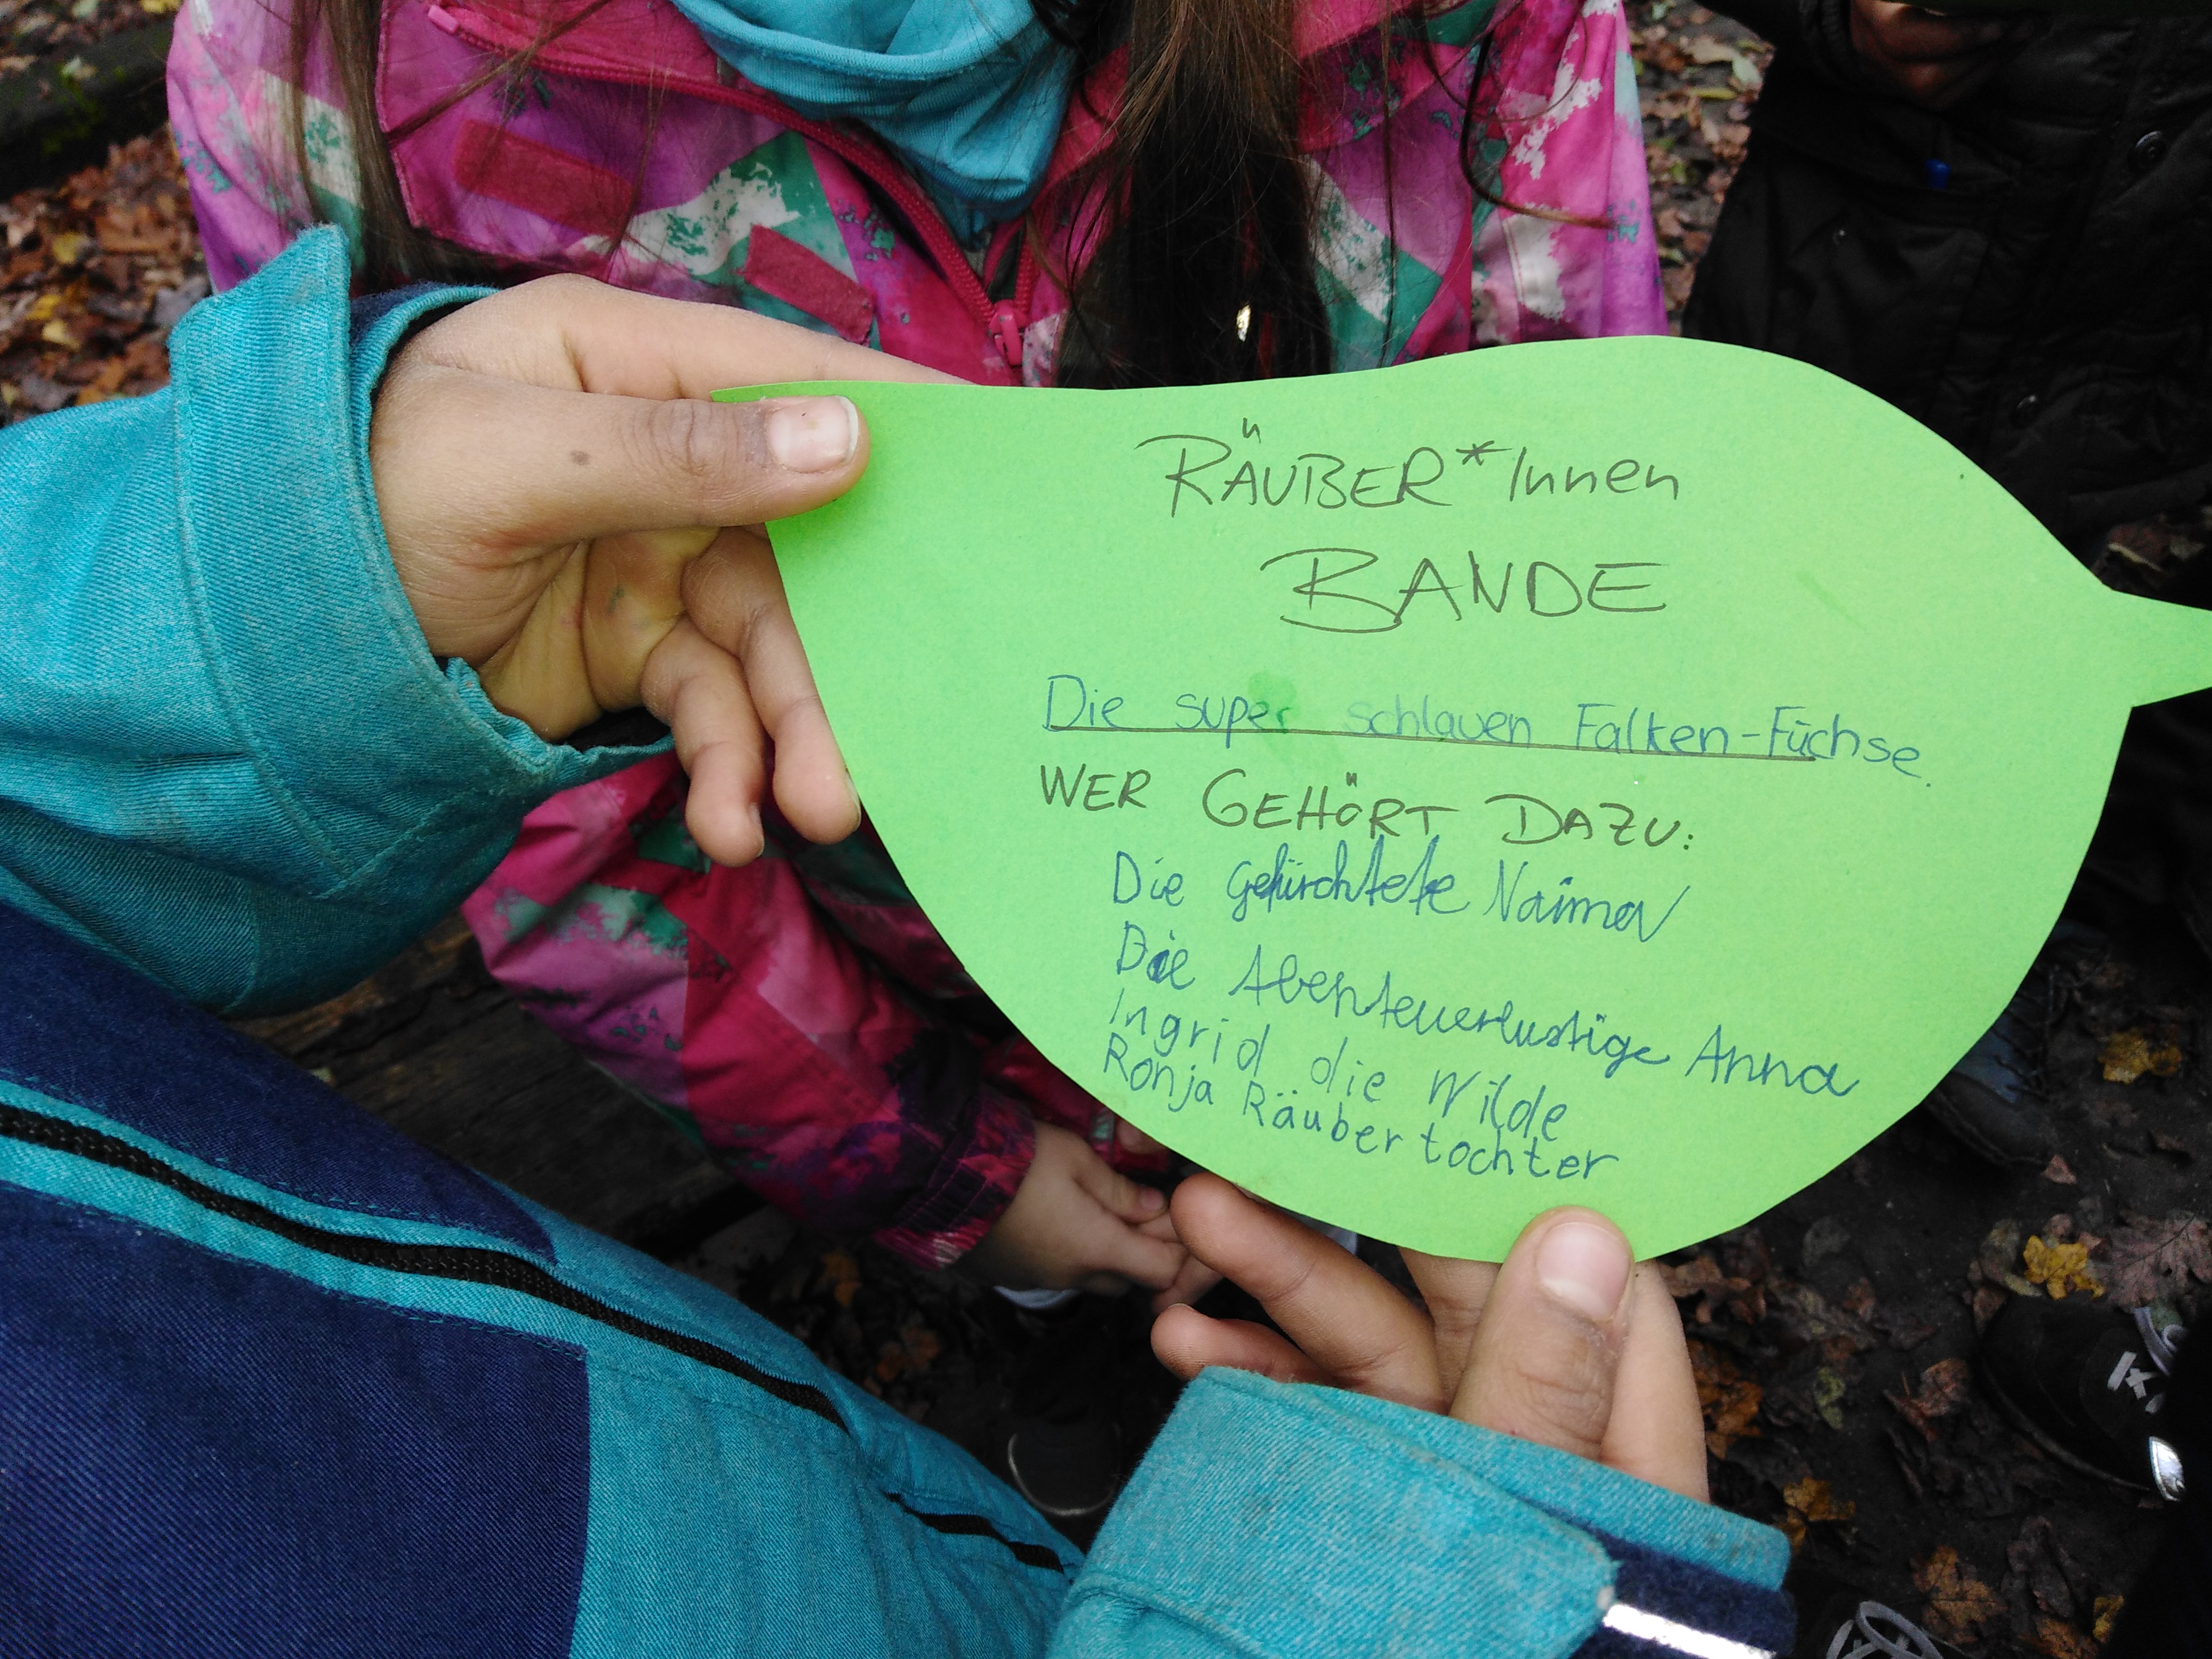 RÄUBER*Innen
BANDE
Die super schlauen Falken-Füchse.
WER GEHÖRT DAZU:
Die gefürchtete Naima
Die Abenteuerlustige Anna
Ingrid die Wilde
Ronja Räubertochter